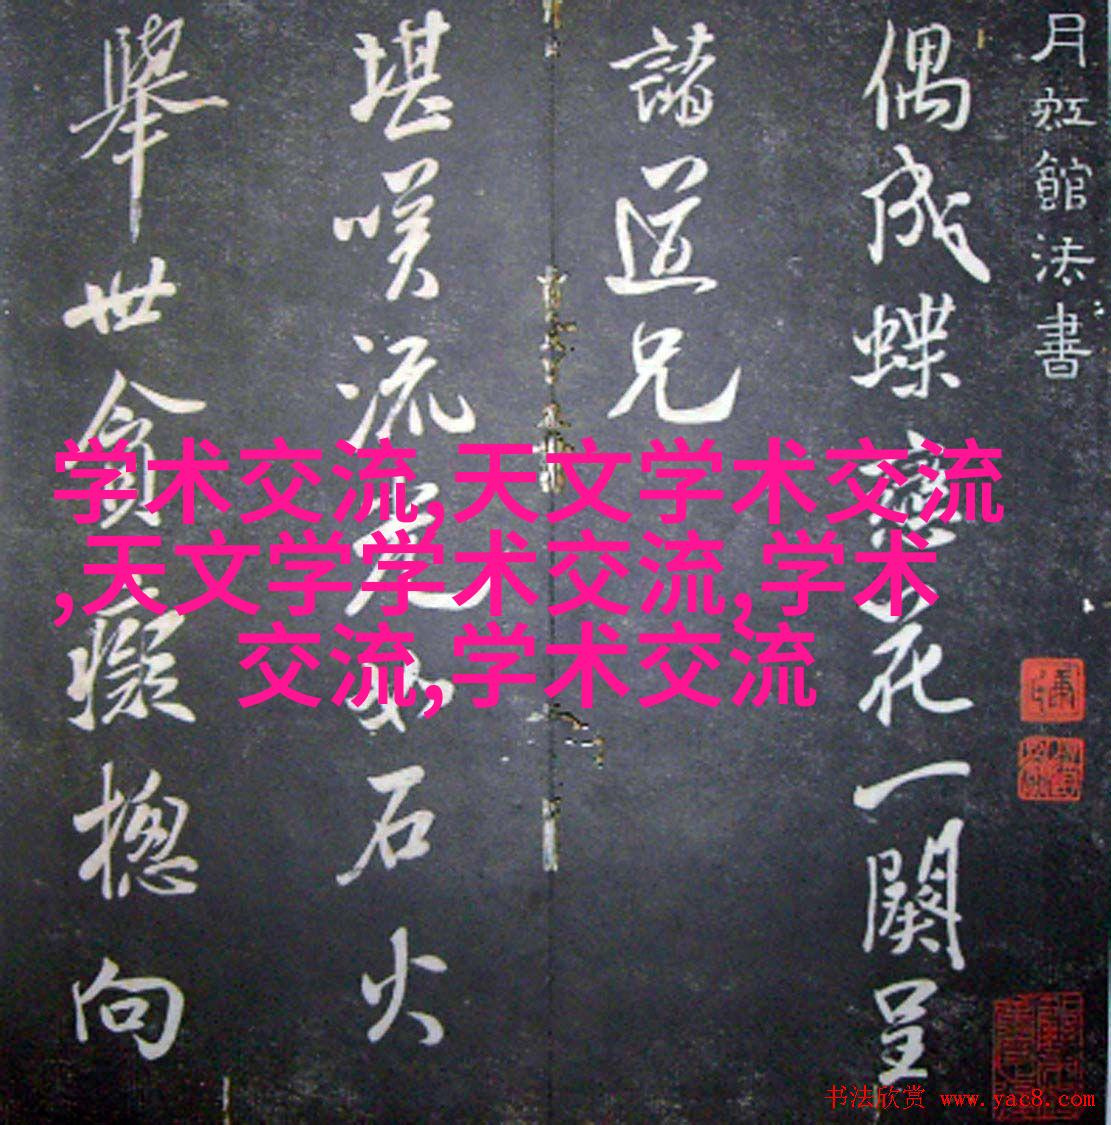 月虹館法書
偶成蝶戀花一闋呈
諸道兄
堪咲流光如石火
舉世貪癡摠向
学术交流,天文学术交流
,天文学学术交流,学术
交流,学术交流
书法欣赏 www.yac8.com